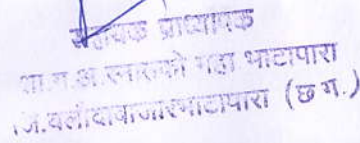 सहायक प्राध्यापक
शा.ग.अ. महा भाटापारा
जि.बलौदाबाजारभाटापारा (छ ग.)